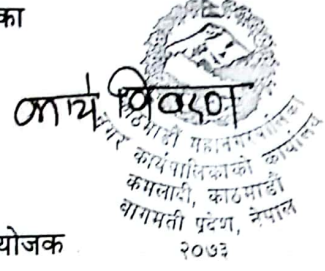 का
कार्य विवरण
काठमाडौं महानगरपालिका
नगर कार्यपालिकाको कार्यालय
कमलादी, काठमाडौं
बागमती प्रदेश, नेपाल
२०७३
योजक